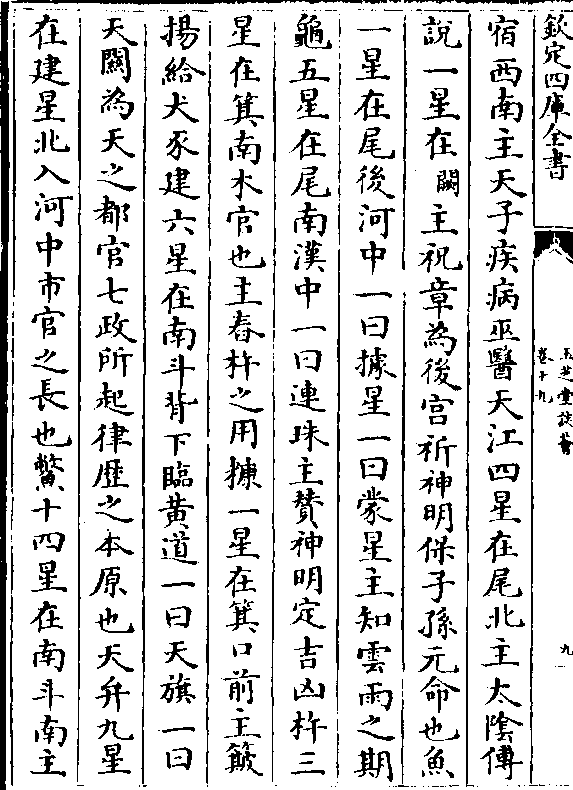 欽定四庫全書
玉芝堂談薈
卷十九
九
宿西南主天子疾病巫醫天江四星在尾北主太陰傅
說一星在闕主祝章為後宫祈神明保子孫元命也魚
一星在尾後河中一曰據星一曰蒙星主知雲雨之期
龜五星在尾南漢中一曰連珠主贊神明定吉凶杵三
星在箕南木官也主舂杵之用穅一星在箕口前主簸
揚給犬豕建六星在南斗背下臨黄道一曰天旗一曰
天闗為天之都官七政所起律歴之本原也天弁九星
在建星北入河中市官之長也鱉十四星在南斗南主